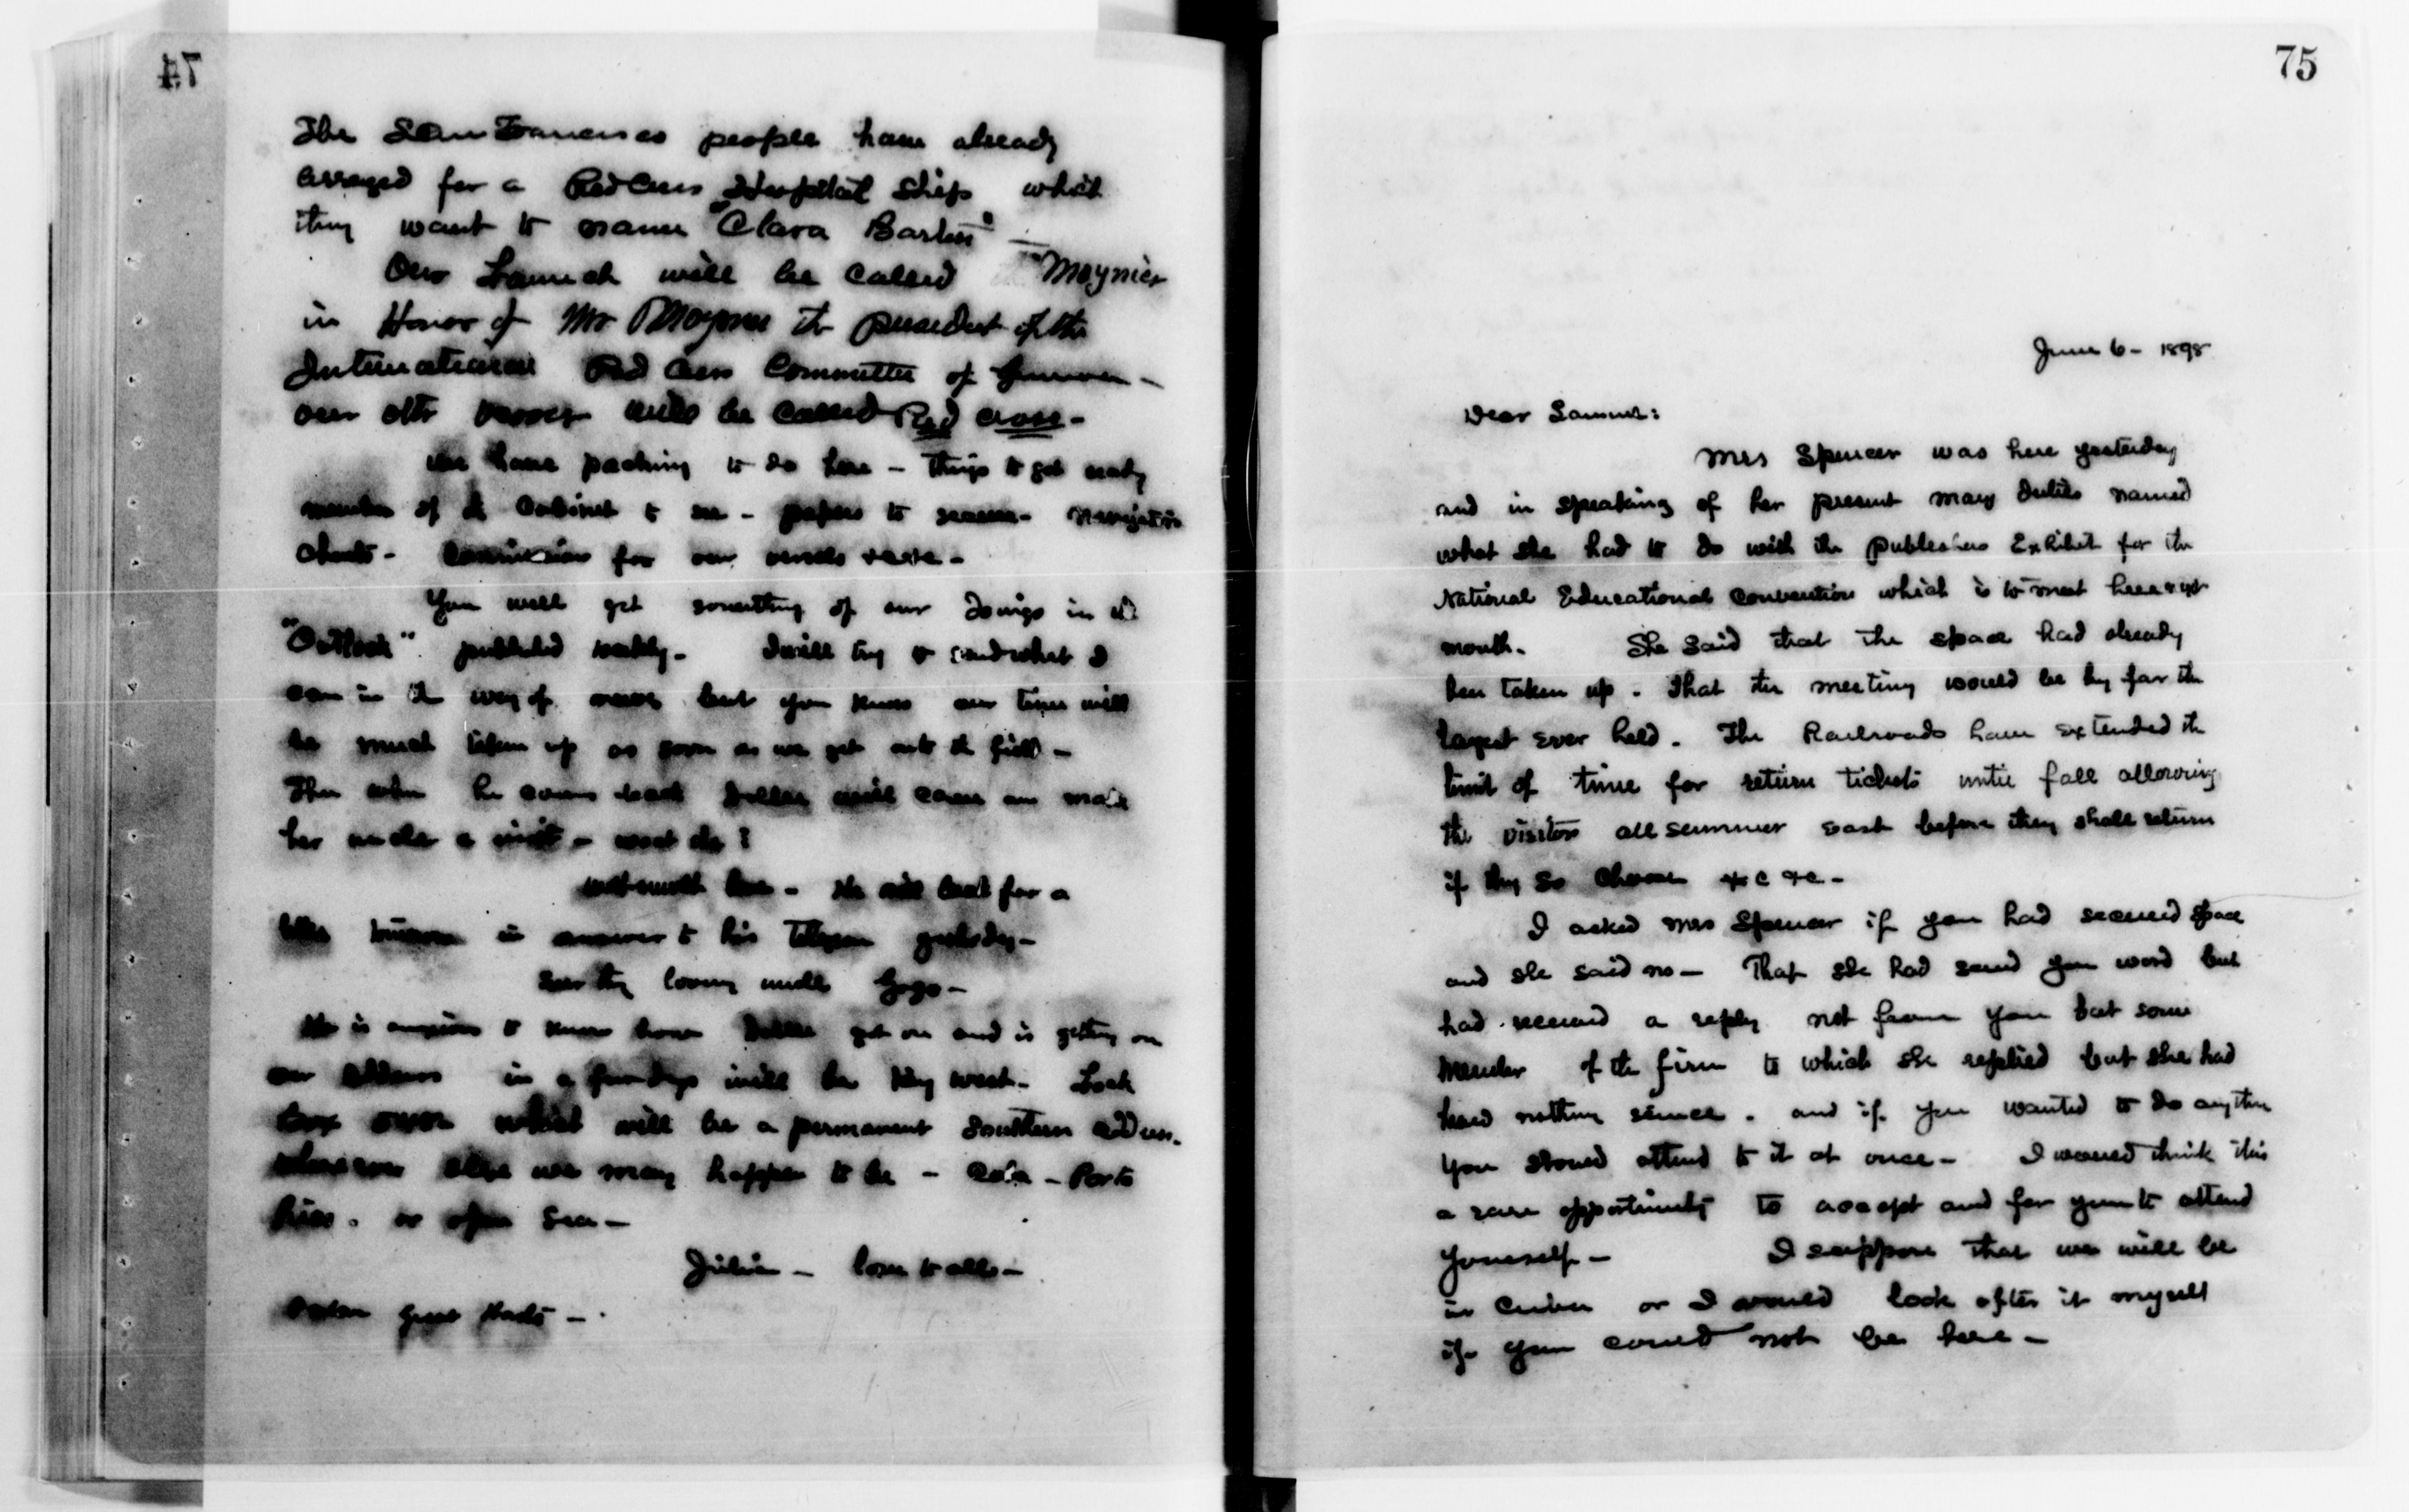 74
The San Francisco people have already
arranged for a Red Cross Hospital Ship which
they want to name "Clara Barton" —
Our Launch will be called Moynier
in Honor of Mr Moynier the president of the
International Red Cross Committee of Geneva —
our other will be called Red Cross -
We have packing to do here - things to get ready
members of the Cabinet to see - papers to - Navigation
Charts - for our vessels -
You will get something of our doings in the
"Outlook" published weekly - I will try to send what I
can in the way of news but you know our time will
be much taken up as soon as we get into the field -
Then when he comes back will come and make
her uncle a visit -
with much love - He will look for a
in answer to his Telegram yesterday -
loving uncle Gogo -
He is anxious to know how got on and is getting on
our address in a few days will be Key West - Lock
Box which will be a permanent Southern address.
else we may happen to be - Cuba - Porto
Rico - or open Sea -
Julian - love to all -
75
June 6 - 1898
Dear Samuel:
Mrs Spencer was here yesterday
and in speaking of her present many duties named
what she had to do with the publishers Exhibit for the
National Educational Convention which is to meet here next
month. She said that the space had already
been taken up. That the meeting would be by far the
largest ever held. The Railroads have extended the
limit of time for return tickets until fall allowing
the visitors all summer east before they shall return
if they so choose &c &c -
I asked Mrs Spencer if you had secured space
and she said no — That she had send you word but
had received a reply not from you but some
member of the firm to which she replied but she had
heard nothing since. and if you wanted to do anything
you should attend to it at once - I would think this
a rare opportunity to accept and for you to attend
yourself - I suppose that we will be
in Cuba or I would look after it myself
if you could not be here -